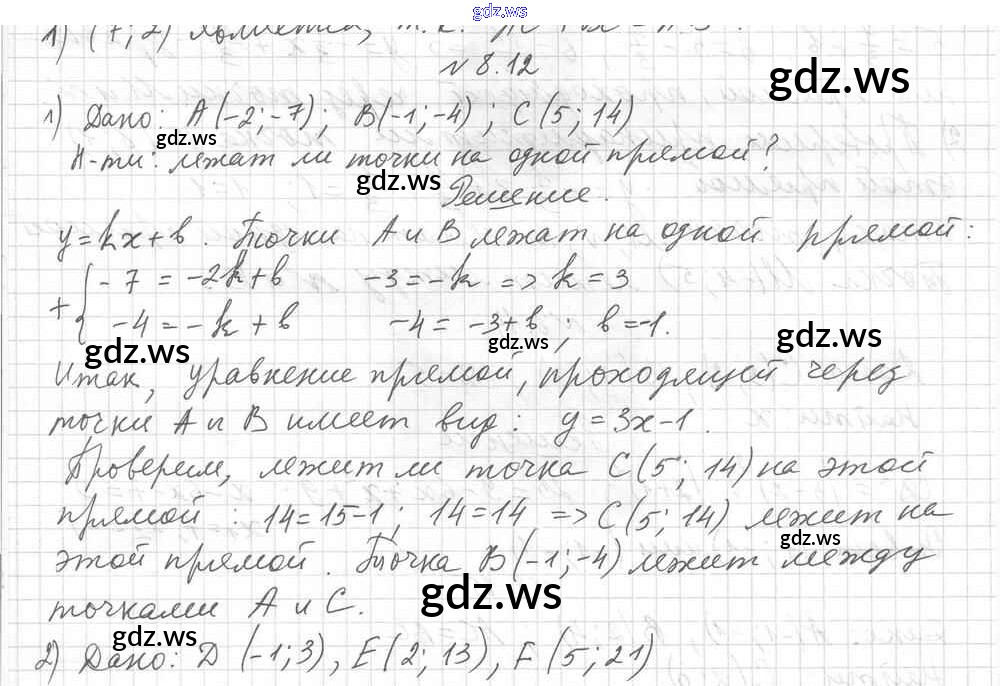 gdz.ws
1) (7; 2)
N 8.12
gdz.ws
1) Дано: A(-2; -7); B(-1; -4); C(5; 14)
gdz.ws
Н-ти: лежат ли точки на одной прямой?
gdz.ws
Решение.
y = kx + b. Точки A и B лежат на одной прямой:
+ { -7 = -2k + b -3 = -k => k = 3
-4 = -k + b -4 = -3 + b; b = -1.
gdz.ws gdz.ws gdz.ws
Итак, уравнение прямой, проходящей через
точки A и B имеет вид: y = 3x - 1.
Проверим, лежит ли точка C(5; 14) на этой
прямой: 14 = 15 - 1; 14 = 14 => C(5; 14) лежит на
gdz.ws
этой прямой. Точка B(-1; -4) лежит между
точками A и C.
gdz.ws
gdz.ws
2) Дано: D(-1; 3), E(2; 13), F(5; 21)